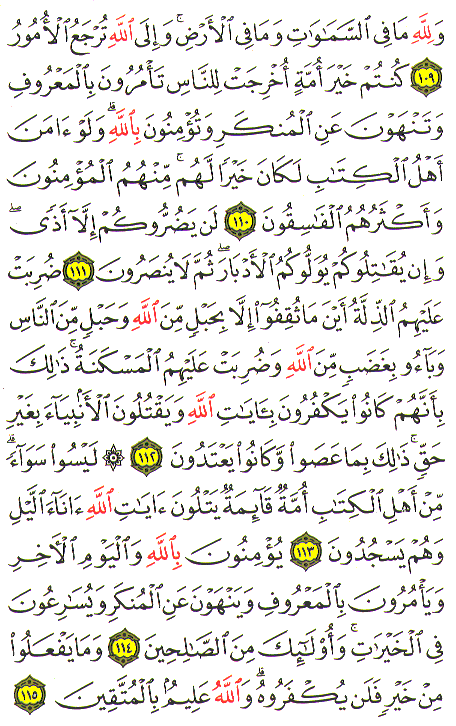 وَلِلَّهِ مَا فِي ٱلسَّمَٰوَٰتِ وَمَا فِي ٱلۡأَرۡضِۚ وَإِلَى ٱللَّهِ تُرۡجَعُ ٱلۡأُمُورُ
١٠٩ كُنتُمۡ خَيۡرَ أُمَّةٍ أُخۡرِجَتۡ لِلنَّاسِ تَأۡمُرُونَ بِٱلۡمَعۡرُوفِ
وَتَنۡهَوۡنَ عَنِ ٱلۡمُنكَرِ وَتُؤۡمِنُونَ بِٱللَّهِۗ وَلَوۡ ءَامَنَ
أَهۡلُ ٱلۡكِتَٰبِ لَكَانَ خَيۡرٗا لَّهُمۚ مِّنۡهُمُ ٱلۡمُؤۡمِنُونَ
وَأَكۡثَرُهُمُ ٱلۡفَٰسِقُونَ ١١٠ لَن يَضُرُّوكُمۡ إِلَّآ أَذٗىۖ
وَإِن يُقَٰتِلُوكُمۡ يُوَلُّوكُمُ ٱلۡأَدۡبَارَۖ ثُمَّ لَا يُنصَرُونَ ١١١ ضُرِبَتۡ
عَلَيۡهِمُ ٱلذِّلَّةُ أَيۡنَ مَا ثُقِفُوٓاْ إِلَّا بِحَبۡلٖ مِّنَ ٱللَّهِ وَحَبۡلٖ مِّنَ ٱلنَّاسِ
وَبَآءُو بِغَضَبٖ مِّنَ ٱللَّهِ وَضُرِبَتۡ عَلَيۡهِمُ ٱلۡمَسۡكَنَةُۚ ذَٰلِكَ
بِأَنَّهُمۡ كَانُواْ يَكۡفُرُونَ بِـَٔايَٰتِ ٱللَّهِ وَيَقۡتُلُونَ ٱلۡأَنۢبِيَآءَ بِغَيۡرِ
حَقّٖۚ ذَٰلِكَ بِمَا عَصَواْ وَّكَانُواْ يَعۡتَدُونَ ١١٢ ۞ لَيۡسُواْ سَوَآءٗۗ
مِّنۡ أَهۡلِ ٱلۡكِتَٰبِ أُمَّةٞ قَآئِمَةٞ يَتۡلُونَ ءَايَٰتِ ٱللَّهِ ءَانَآءَ ٱلَّيۡلِ
وَهُمۡ يَسۡجُدُونَ ١١٣ يُؤۡمِنُونَ بِٱللَّهِ وَٱلۡيَوۡمِ ٱلۡأٓخِرِ
وَيَأۡمُرُونَ بِٱلۡمَعۡرُوفِ وَيَنۡهَوۡنَ عَنِ ٱلۡمُنكَرِ وَيُسَٰرِعُونَ
فِي ٱلۡخَيۡرَٰتِۖ وَأُوْلَٰٓئِكَ مِنَ ٱلصَّٰلِحِينَ ١١٤ وَمَا يَفۡعَلُواْ
مِنۡ خَيۡرٖ فَلَن يُكۡفَرُوهُۗ وَٱللَّهُ عَلِيمُۢ بِٱلۡمُتَّقِينَ ١١٥